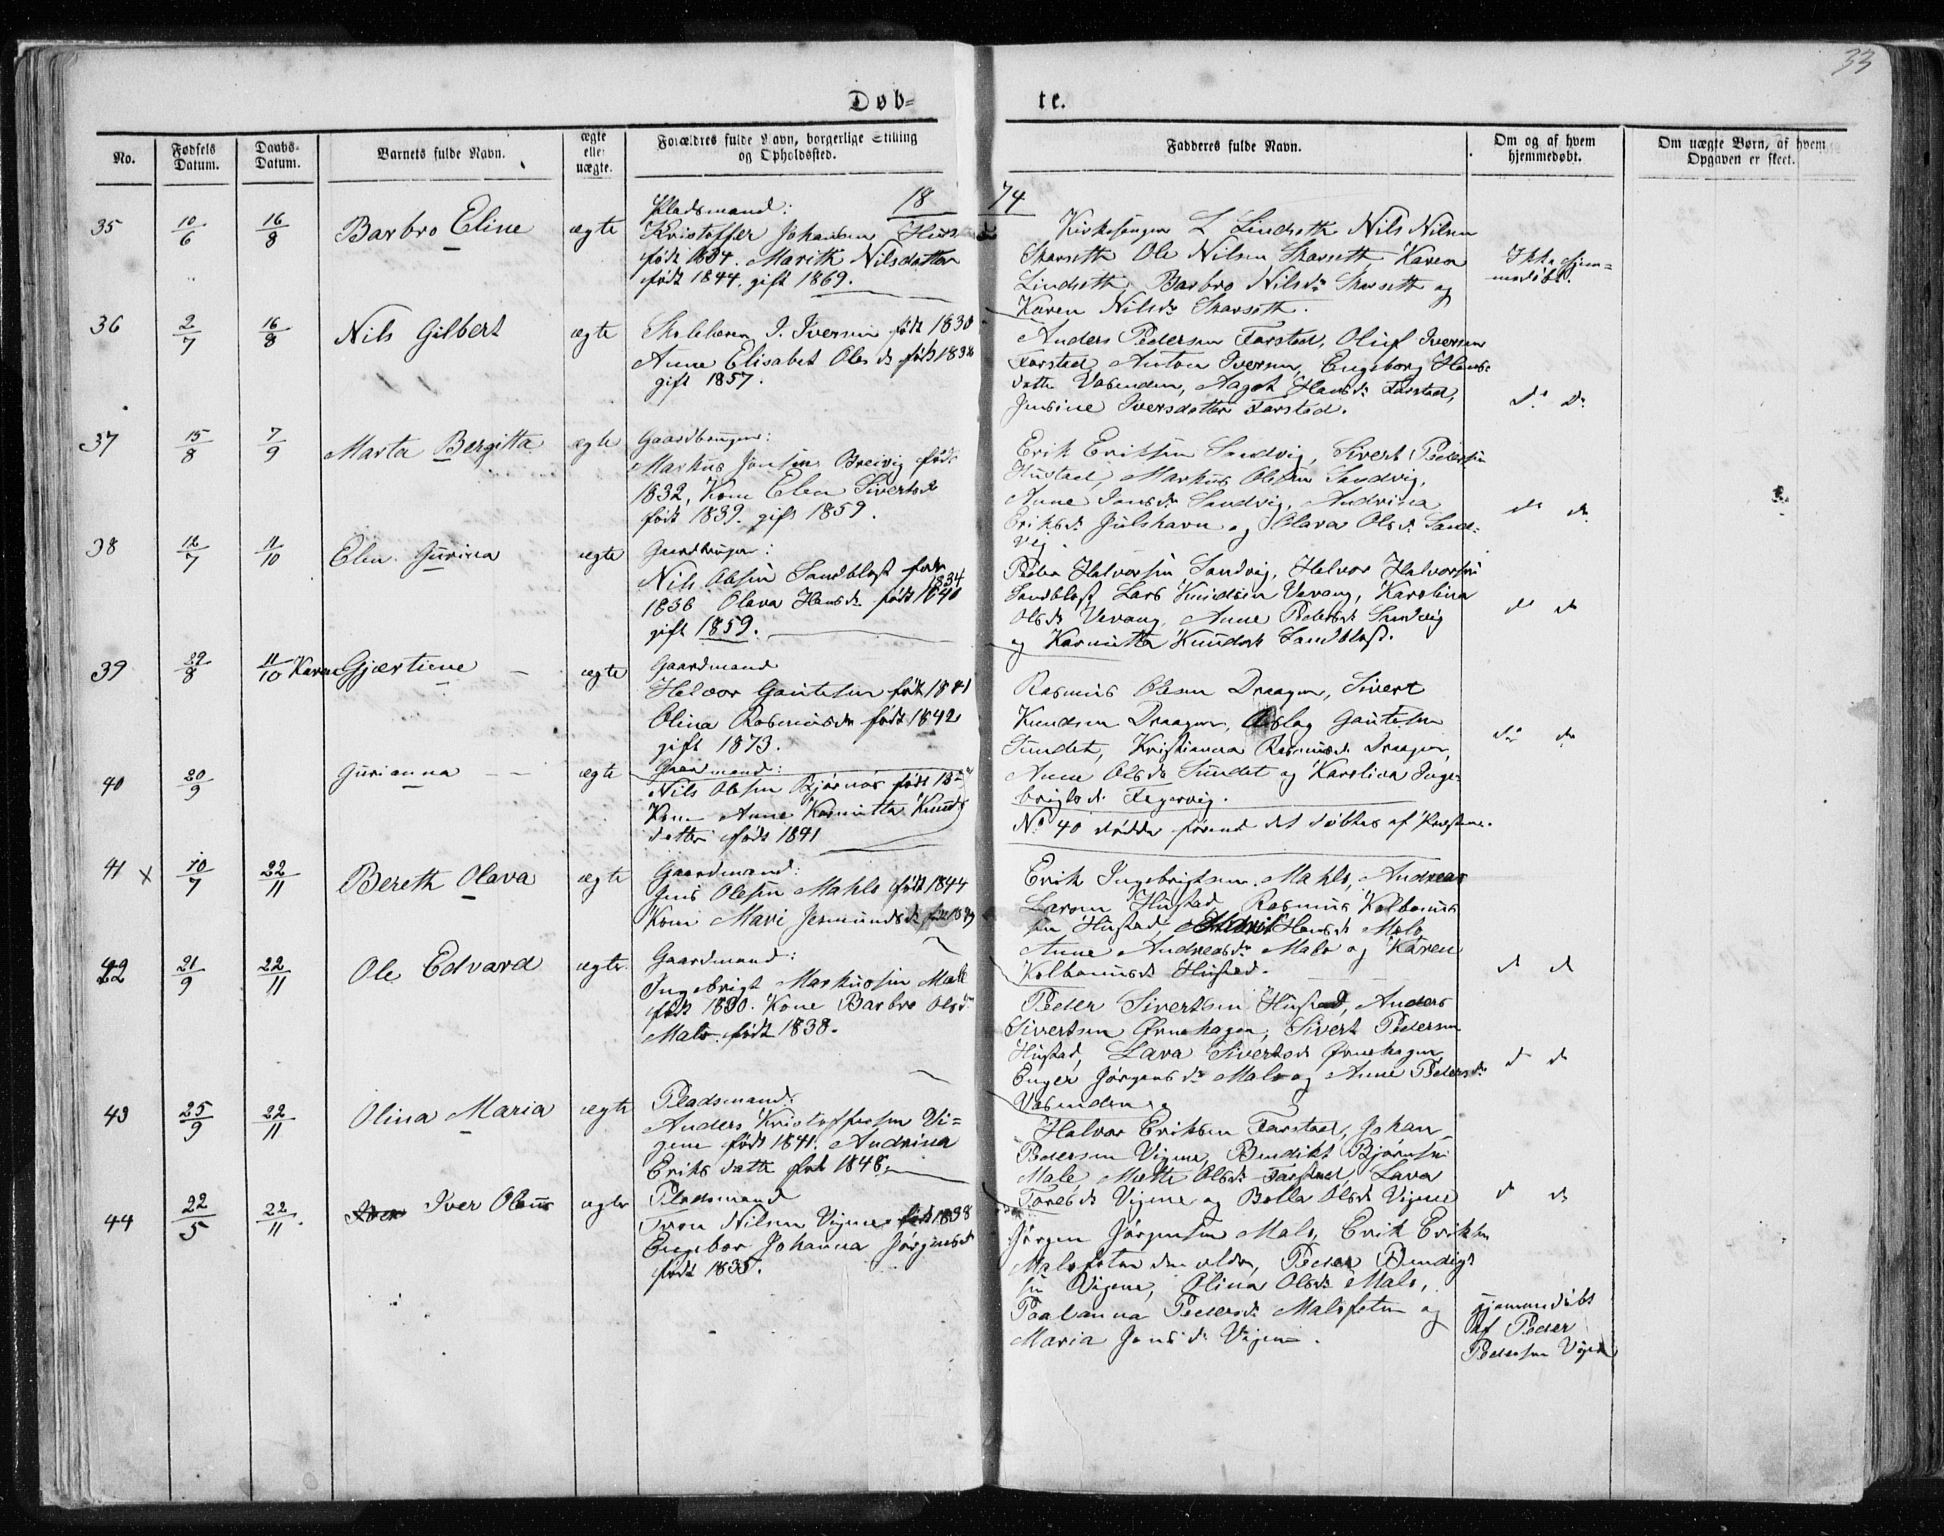 33
Døb= te.
No.
Fødsels Datum.
Daabs-Datum.
Barnets fulde Navn.
ægte eller uægte.
Forældres fulde Navn, borgerlige Stilling og Opholdssted.
Fadderes fulde Navn.
Om og af hvem hjemmedøbt.
Om uægte Børn, af hvem Opgaven er skeet.
18 74
35 10/6 16/8 Barbro Eline ægte
Pladsmand:
Kristoffer Johansen
født 1834. Marith Nilsdatter
født 1844. gift 1869.
Kirkesanger L Lindseth Nils Nilsen
Skarseth Ole Nilsen Skarseth Karen
Lindseth, Barbro Nilsdr Skarseth og
Karen Nilsdr Skarseth.
Ikke hjem=
medøbt.
36 2/7 16/8 Nils Gilbert ægte
Skolelærer I. Iversen født 1830
Anne Elisabet Olesdr født 1832
gift 1857.
Anders Pedersen Farstad, Oluf Iversen
Farstad, Anton Iversen, Engeborg Hans=
datter Vasenden, Aagot Hansdr Farstad,
Jensine Iversdatter Farstad.
do do
37 15/8 7/9 Marta Bergitta ægte
Gaardbruger:
Markus Jonsen Breivig født
1832, Kone Elen Sivertsdr
født 1839. gift 1859.
Erik Eriksen Sandvig, Sivert Pedersen
Hustad, Markus Olesen Sandvig,
Anne Jonsdr Sandvig, Andrina
Eriksdr Julshavn og Olava Olsdr Sand=
vig.
do do
38 12/7 11/10 Elen Gurina ægte
Gaardbruger:
Nils Olsen Sandblost født
1834
1836 Olava Hansdr født 1840
gift 1859.
Peder Halvorsen Sandvig, Halvor Halvorsen
Sandblost Lars Knudsen Vevang, Karolina
Olsdr Vevang, Anne Pedersdr Sandvig
og Karmitta Knudsdr Sandblost.
do do
39 29/8 11/10 Karen Gjertine ægte
Gaardmand
Halvor Gautesen født 1841
Olina Rasmusdr født 1842
gift 1873.
Rasmus Olesen Draagen, Sivert
Knudsen Draagen, Aslag Gautesen
Sundet, Kristianna Rasmusdr Draagen,
Anne Olsdr Sundet og Karolina Inge=
brigtsdr Fegervig.
do do
40 20/9 Gurianna ægte
Gaardmand:
Nils Olsen Bjørnør født
Kone Anne Karmitta Knuds
datter født 1841
No 40 dødde førend det døbtes af Kristne.
41 x 10/7 22/11 Bereth Olava ægte
Gaardmand:
Jens Olesen Mahle født 1844
Kone Mari Jermundsdr
Erik Ingebrigtsen Mahle, Andreas
Larsen Hustad, Rasmus Kolbenus
sen Hustad, Hansdr Malo
Anne Andreasdr Malo og Karen
Kolbenusdr Hustad.
d d
42 21/9 22/11 Ole Edvard ægte
Gaardmand:
Ingebrigt Markussen Male
født 1830. Kone Barbro Olsdr
Malo født 1838.
Peder Sivertsen Hustad, Anders
Sivertsen Ørnehagen, Sivert Pedersen
Hustad, Lava Sivertsdr Ørnehagen,
Enger Jørgensdr Malo og Anne Pedersdr
Vasenden.
d d
43 25/9 22/11 Olina Maria ægte
Pladsmand:
Anders Kristoffersen Vi=
gene født 1841. Andrina
Eriks datter født 1848.
Halvor Eriksen Farstad, Johan
Pedersen Vigene, Bendikt Bjørnsen
Male, Mette Olsdr Farstad, Lava
Toresdr Vigene og Bolla Olsdr Vigene
d d
44 22/5 22/11. Iver Olaus ægte
Pladsmand
Tron Nilsen Vigene født 1838
Engebor Johanna Jørgensdr
født 1835.
Jørgen Jørgensen Malo, Erik Eriksen
Malofeten den eldre, Peder Bendigt
sen Vigene, Olina Olsdr Malo,
Paalanna Pedersdr Malofeten og
Maria Jonsdr Vigen.
hjemmedøbt
af Peder
Pedersen Vigen